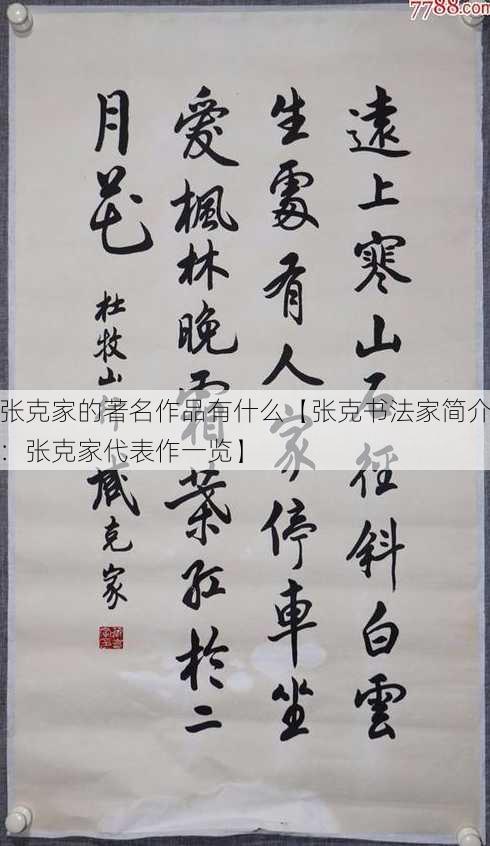 7788.com
遠上寒山石径斜白雲
生處有人家停車坐
愛楓林晚霜葉紅於二
月花
杜牧山行 臧克家
张克家的著名作品有什么【张克书法家简介
：张克家代表作一览】